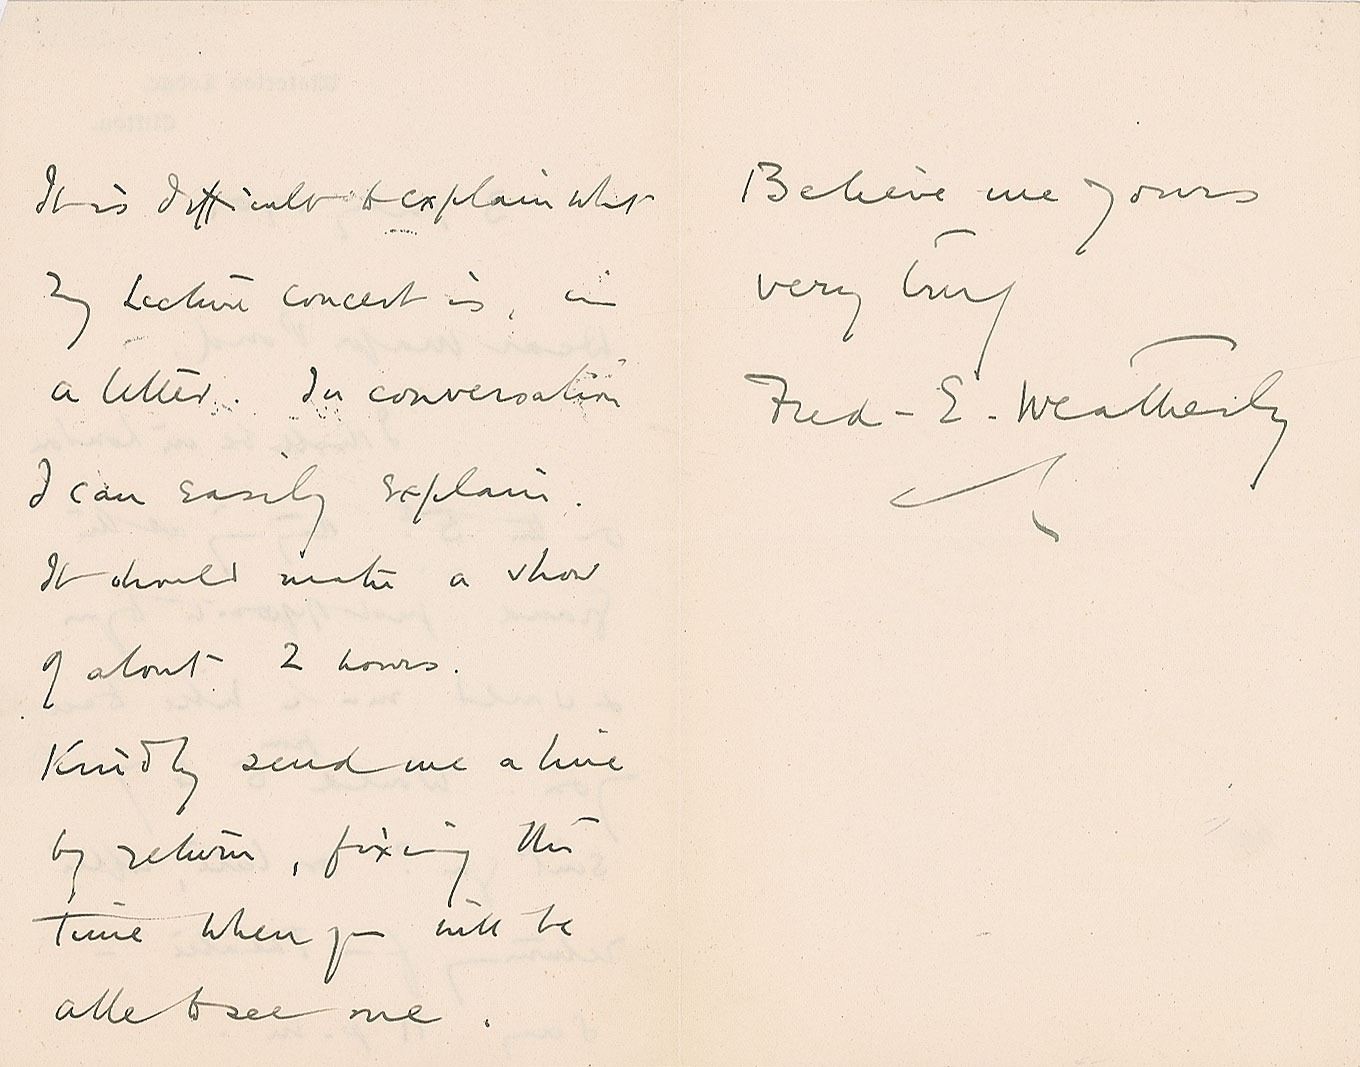 It is difficult to explain what
my Lecture Concert is, in
a letter. In conversation
I can easily explain.
It should make a show
of about 2 hours.
Kindly send me a line
by return, fixing the
time when you will be
able to see me.
Believe me yours
very truly
Fred - E. Weatherly